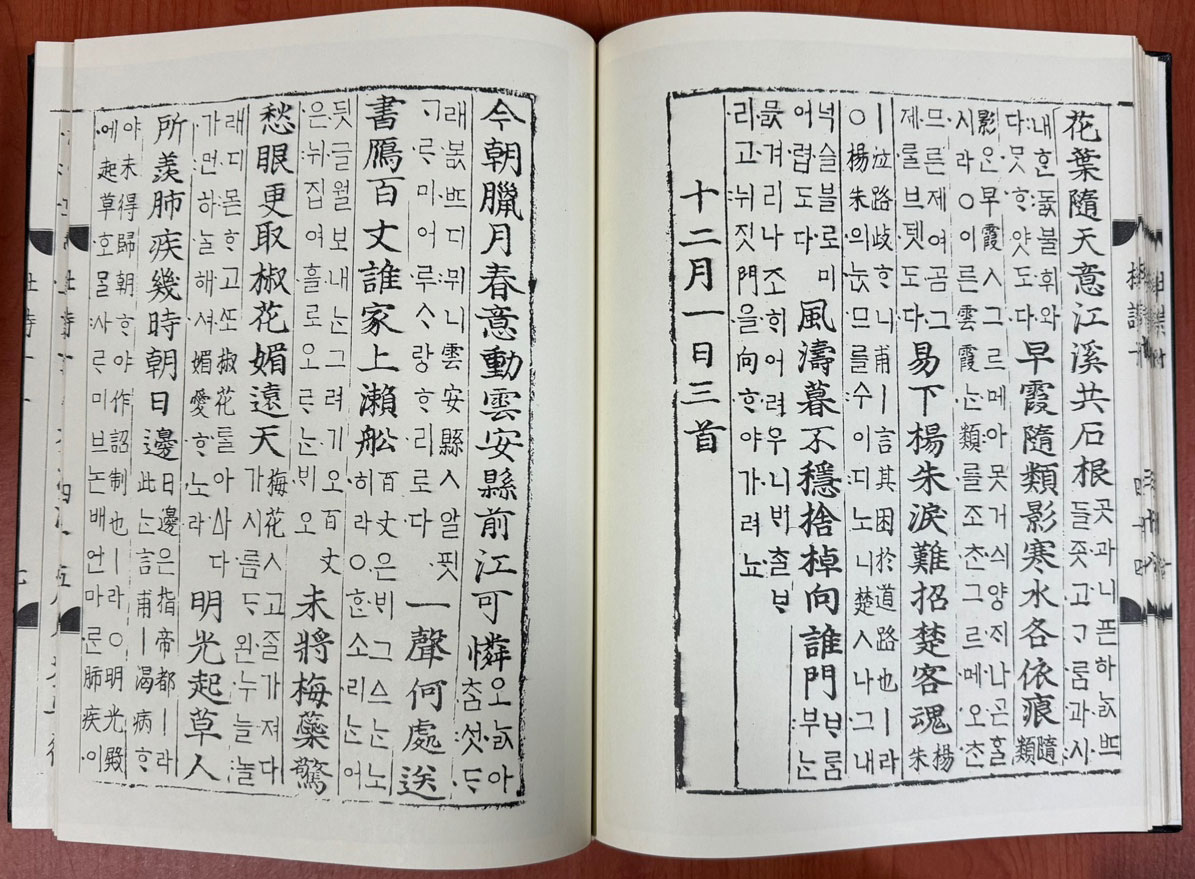 花葉隨天意江溪共石根
곳과니픈하ᄂᆞᇙᄠᅳ
들좃고ᄀᆞᄅᆞᆷ과시
내ᄒᆞᆫ돐불휘와
다ᄆᆞᆺᄒᆞ얏도다
早霞隨類影寒水各依痕
隨
類
影은早霞ㅅ그르메아못거싀양ᄌᆡ나ᄀᆞᆮᄒᆞᆯ
시라○이ᄅᆞᆫ雲霞ᄂᆞᆫ類ᄅᆞᆯ조ᄎᆞᆫ그르메오ᄎᆞᆫ
므른제여곰그
제ᄅᆞᆯ브텟도다
易下楊朱淚難招楚客魂
楊
朱
ㅣ泣路歧ᄒᆞ니甫ㅣ言其困於道路也ㅣ라
○楊朱의눖므를수이디노니楚人나그내
넉슬블로미
어렵도다
風濤暮不穩捨棹向誰門
ᄇᆞᄅᆞᆷ
부ᄂᆞᆫ
믌겨리나조ᄒᆡ어려우니ᄇᆡ츨ᄇᆞ
리고뉘짓門을向ᄒᆞ야가려뇨
十二月一日三首
今朝臘月春意動雲安縣前江可憐
오ᄂᆞᆳ아
ᄎᆞᆷ섯ᄃᆞ
래봆ᄠᅳ디뮈니雲安縣ㅅ알ᄑᆡᆺ
ᄀᆞᄅᆞ미어루ᄉᆞ랑ᄒᆞ리로다
一聲何處送
書鴈百丈誰家上瀬舩
百丈은ᄇᆡᄭᅳᄂᆞᆫ노
히라○ᄒᆞᆫ소리ᄂᆞᆫ어
듸글월보내ᄂᆞᆫ그려기오百丈
은뉘집여흘로오ᄅᆞᄂᆞᆫᄇᆡ오
未將梅蘂驚
愁眼更取椒花媚遠天
梅花ㅅ고ᄌᆞᆯ가져다
가시름ᄃᆞ왼누늘놀
래디몯ᄒᆞ고ᄯᅩ椒花ᄅᆞᆯ아ᅀᅡ다
가먼하ᄂᆞᆯ해셔媚愛ᄒᆞ노라
明光起草人
所羨肺疾幾時朝日邊
日邊은指帝都ㅣ라
此ᄂᆞᆫ言甫ㅣ渴病ᄒᆞ
야未得歸朝ᄒᆞ야作詔制也ㅣ라○明光殿
에起草호ᄆᆞᆯ사ᄅᆞᄆᆡ브논배언마ᄅᆞᆫ肺疾이